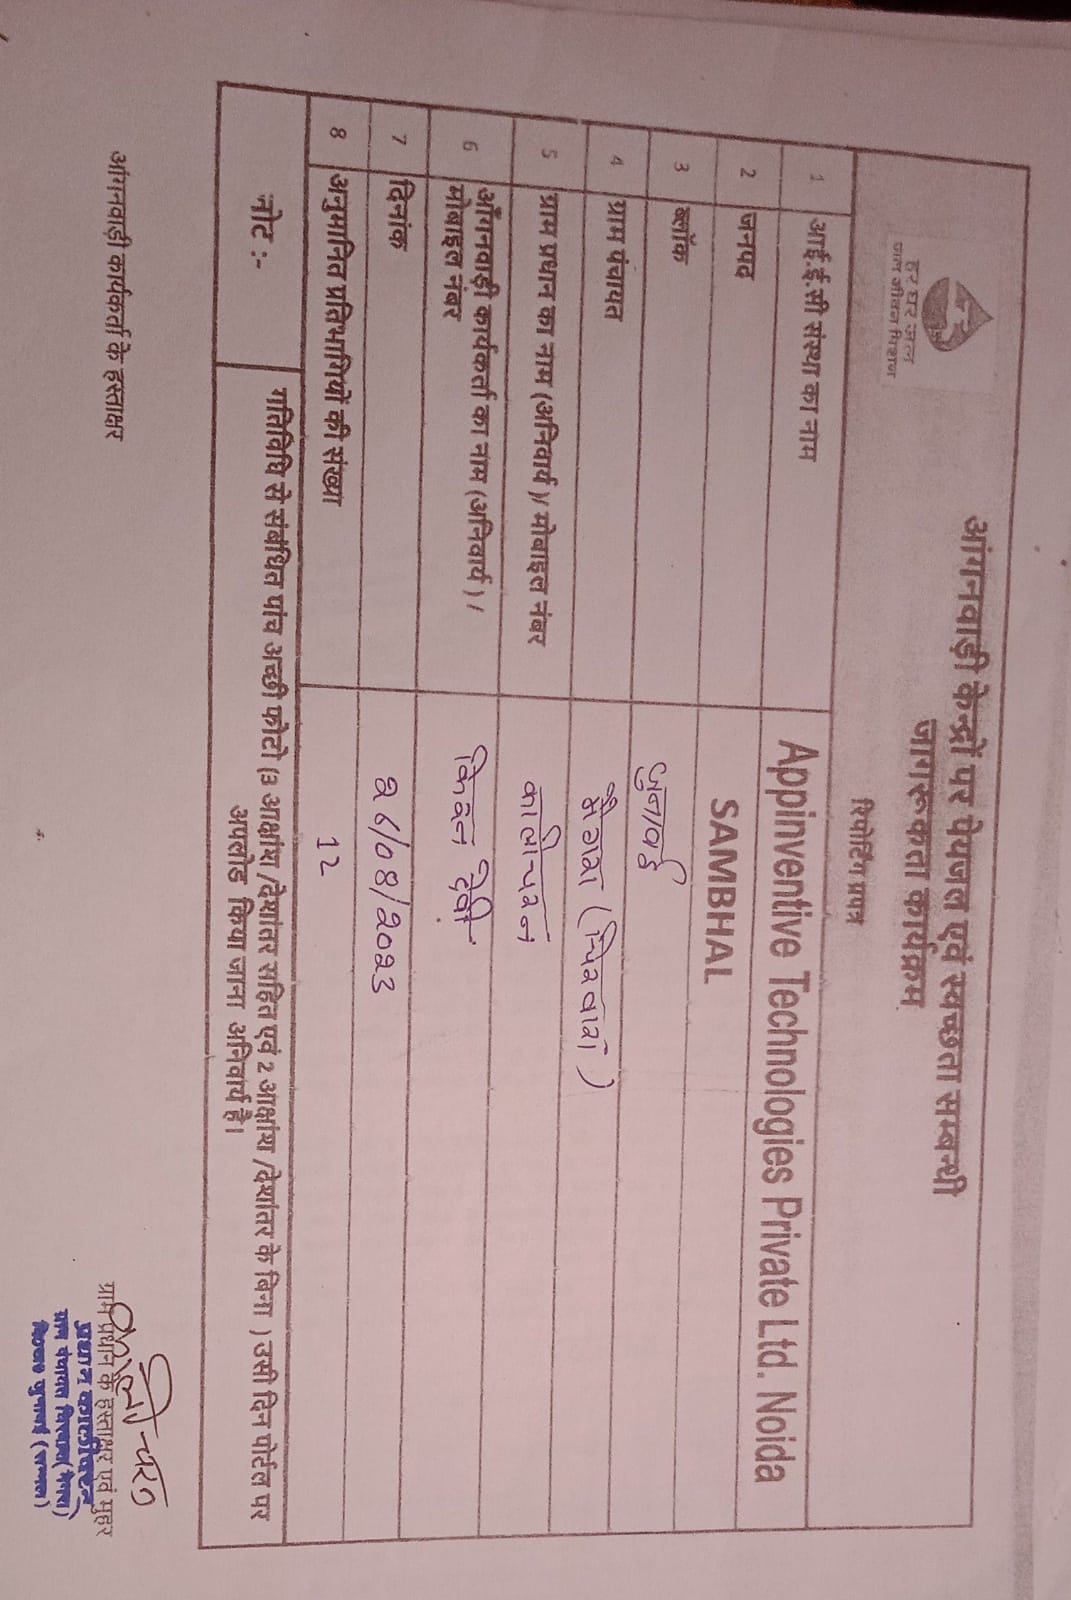 हर घर जल
जल जीवन मिशन
आंगनवाड़ी केन्द्रों पर पेयजल एवं स्वच्छता सम्बन्धी
जागरूकता कार्यक्रम
रिपोर्टिंग प्रपत्र
1 आई.ई.सी संस्था का नाम Appinventive Technologies Private Ltd. Noida
2 जनपद SAMBHAL
3 ब्लॉक जुनावई
4 ग्राम पंचायत
5 ग्राम प्रधान का नाम (अनिवार्य)/ मोबाइल नंबर कालीचरन
6 आँगनवाड़ी कार्यकर्ता का नाम (अनिवार्य ) /
मोबाइल नंबर
देवी
7 दिनांक 26/08/2023
8 अनुमानित प्रतिभागियों की संख्या 12
नोट :-
गतिविधि से संबंधित पांच अच्छी फोटो (3 आक्षांश /देशांतर सहित एवं 2 आक्षांश /देशांतर के बिना ) उसी दिन पोर्टल पर
अपलोड किया जाना अनिवार्य है।
आंगनवाड़ी कार्यकर्ता के हस्ताक्षर
ग्राम प्रधान के हस्ताक्षर एवं मुहर